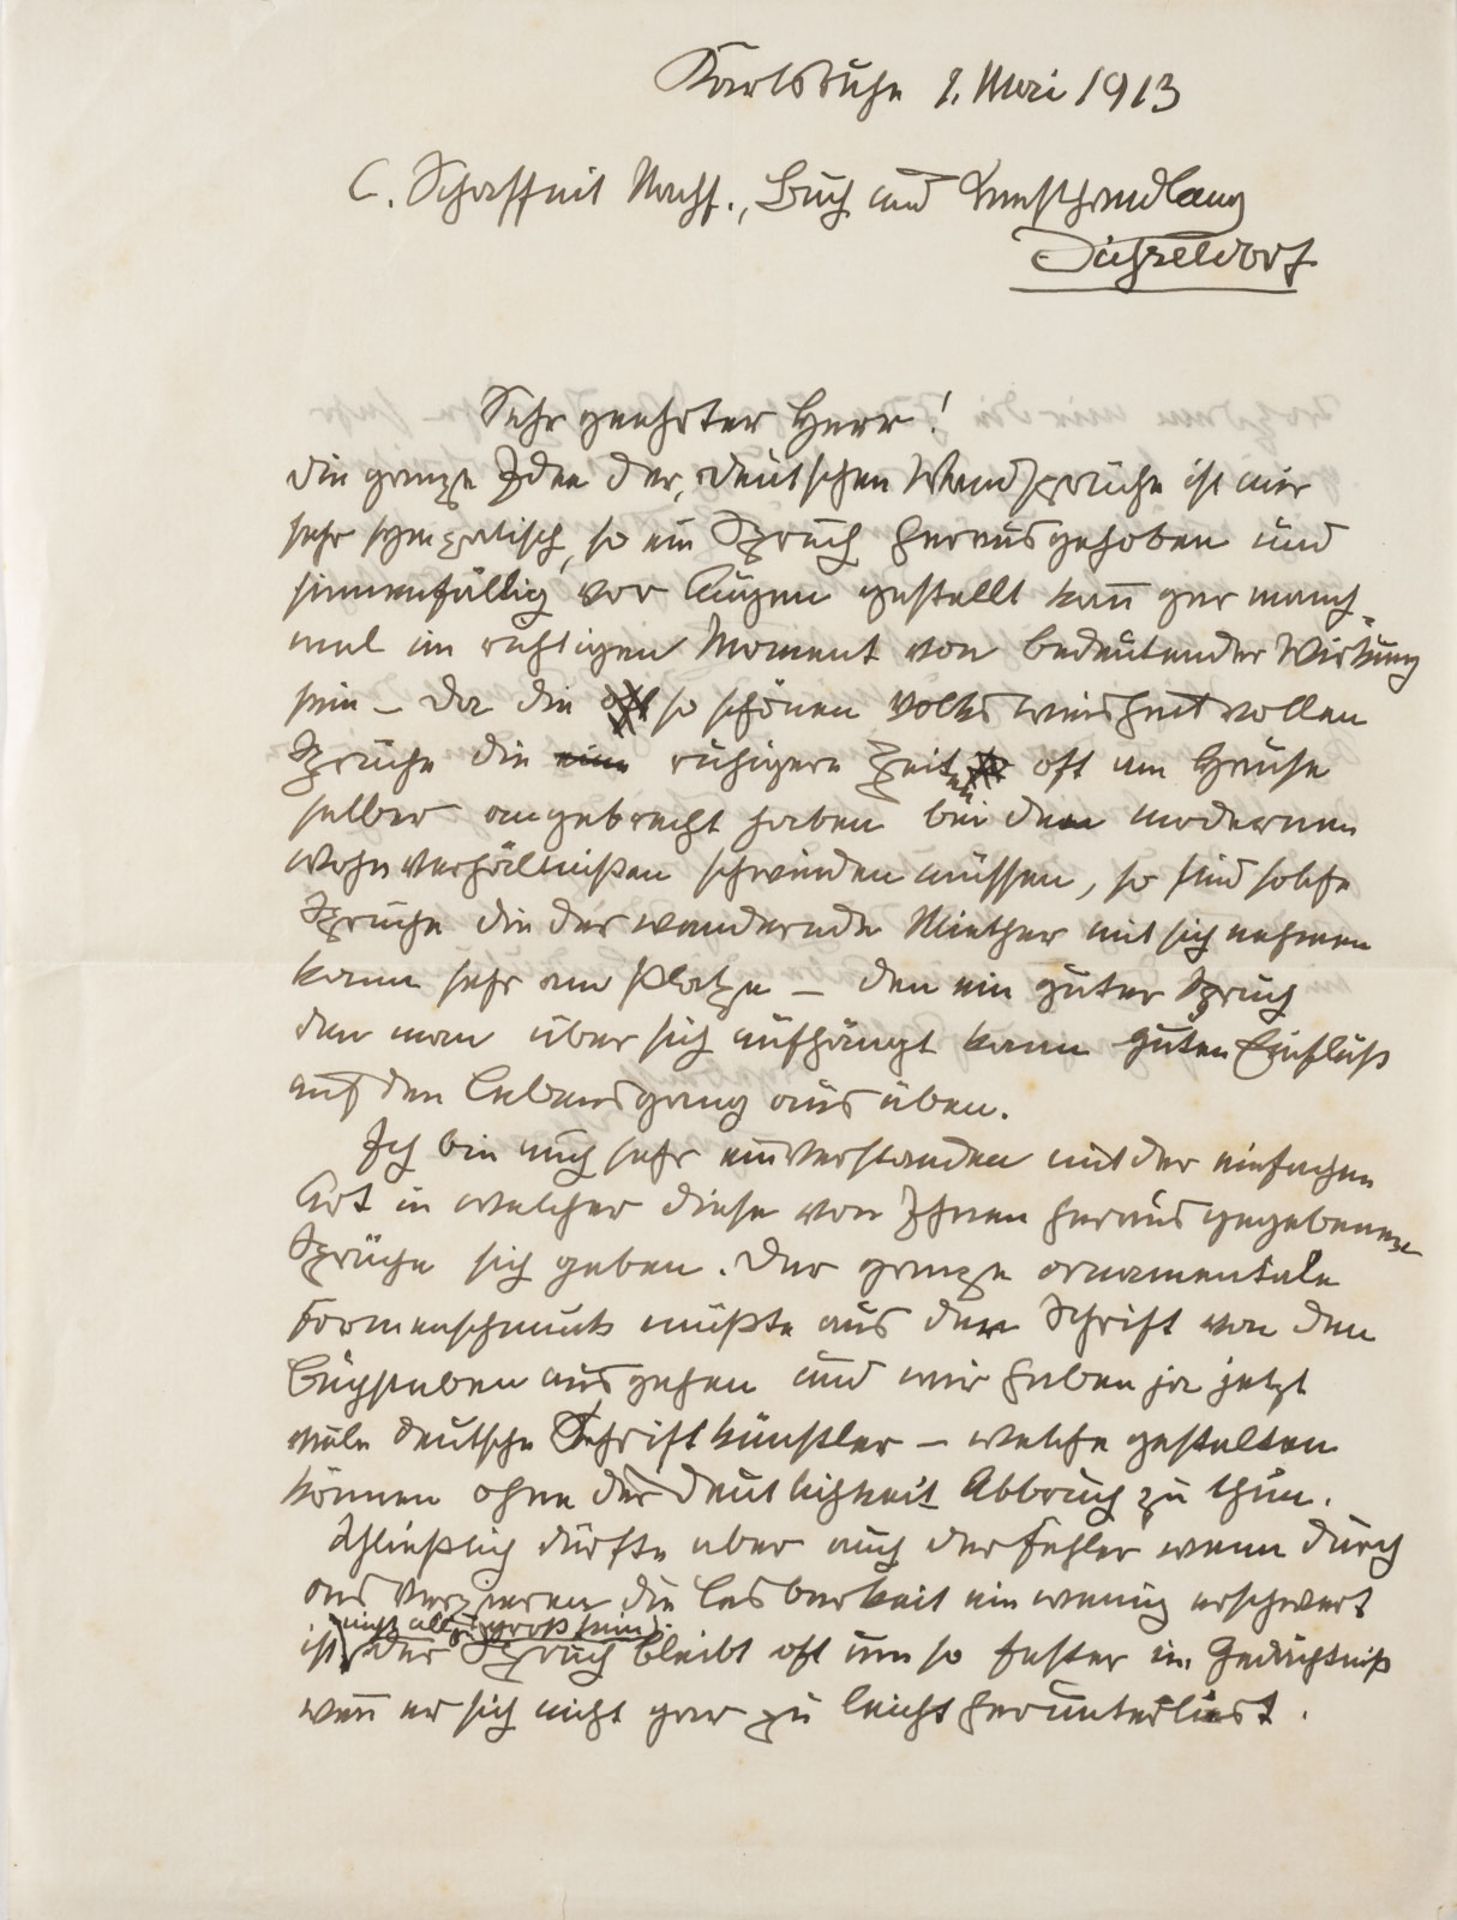 Karlsruhe 1. Mai 1913
C. Schaffnit Nachf., Buch und Kunsthandlung
Düsseldorf
Sehr geehrter Herr!
die ganze Idee der, deutschen Wandsprüche ist mir
sehr sympatisch, so ein Spruch herausgehoben und
sinnenfällig vor Augen gestellt kan̅ gar manch-
mal im richtigen Moment von bedeutender Wirkung
sein – Da die so schönen volksweisheitvollen
Sprüche die ruhigere Zeiten oft am Hause
selber angebracht haben bei den modernen
Wohnverhältnißen schwinden müssen, so sind solche
Sprüche die der wandernde Miether mit sich nehmen
kann sehr am Platze – den ein guter Spruch
den man über sich aufhängt kann guten Einfluß
auf den Lebensgang ausüben.
Ich bin auch sehr einverstanden mit der einfachen
Art in welcher diese von Ihnen herausgegebenen
Sprüche sich geben. Der ganze ornamentale
Formenschmuck müßte aus der Schrift von den
Buchstaben ausgehen und wir haben ja jetzt
viele deutsche Schriftkünstler – welche gestalten
können ohne der Deutlichkeit Abbruch zu thun.
Schließlich dürfte aber auch der Fehler wenn durch
das Verzieren die Lesbarkeit ein wenig erschwert
nicht allzu groß sein.
ist, der Spruch bleibt oft um so fester im Gedächtniß
wen̅ er sich nicht gar zu leicht herunterliest.